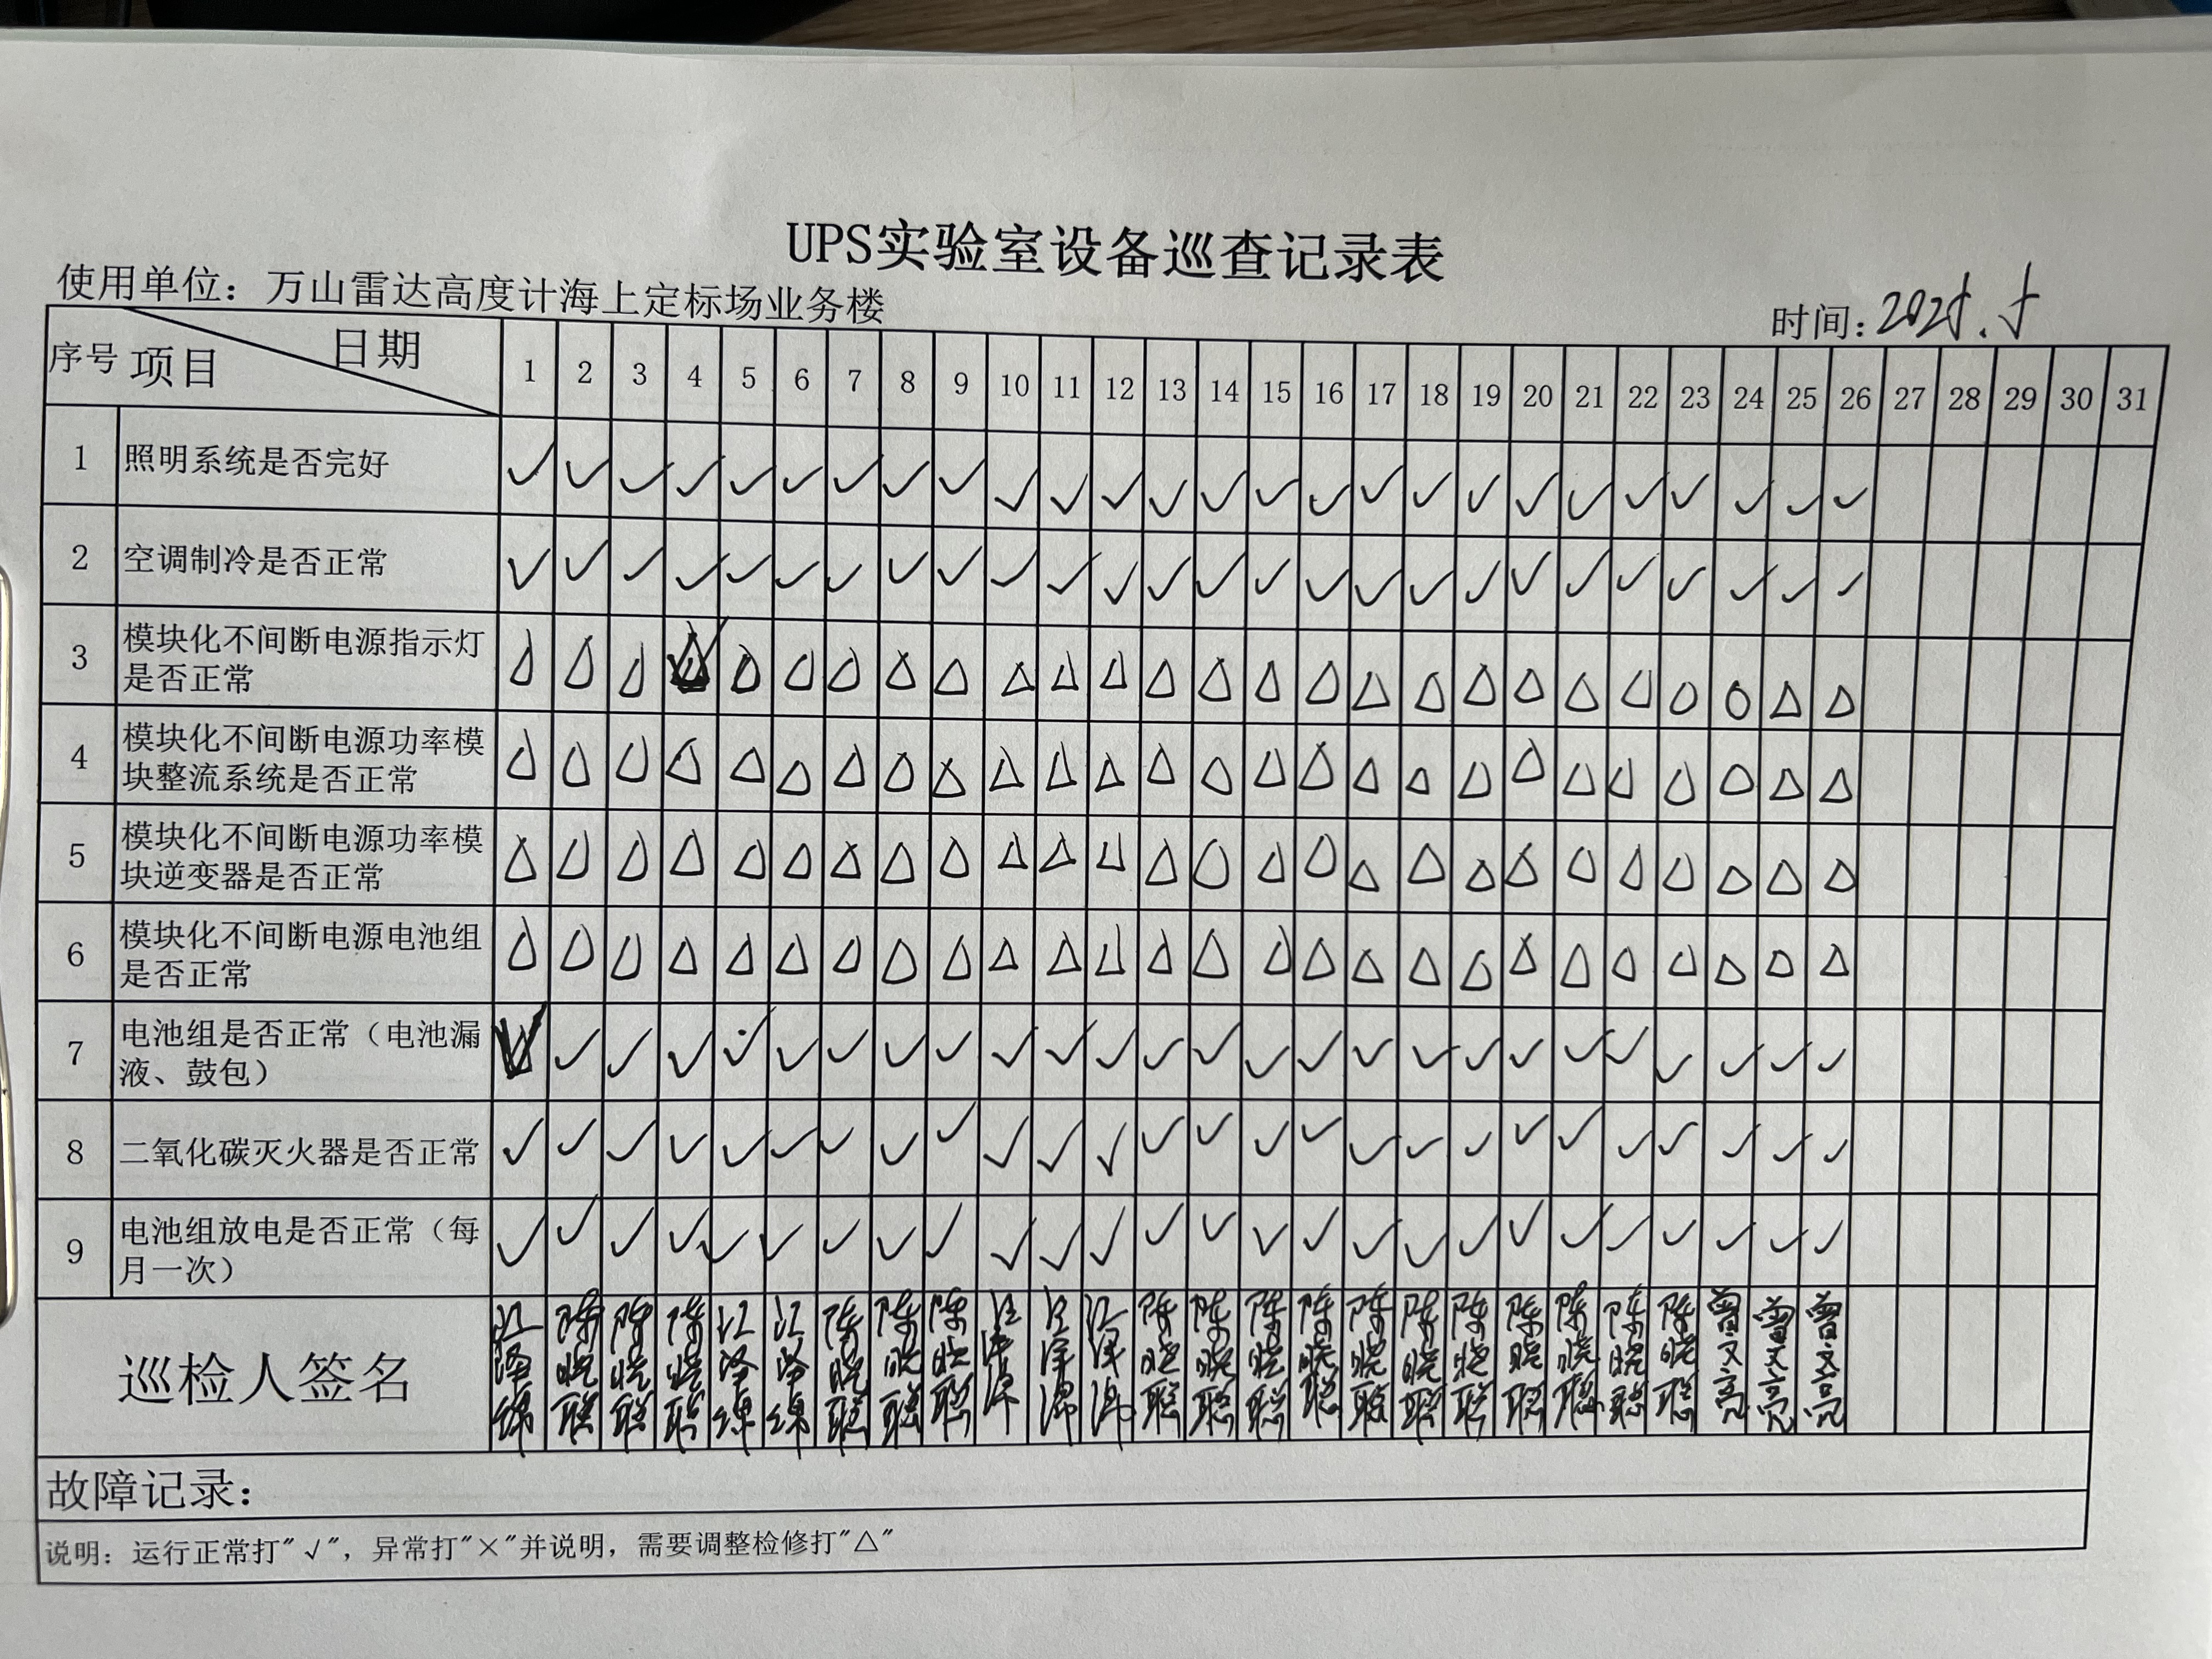 UPS实验室设备巡查记录表
使用单位：万山雷达高度计海上定标场业务楼 时间：2025.5
序号 项目 日期 1 2 3 4 5 6 7 8 9 10 11 12 13 14 15 16 17 18 19 20 21 22 23 24 25 26 27 28 29 30 31
1 照明系统是否完好 ✓ ✓ ✓ ✓ ✓ ✓ ✓ ✓ ✓ ✓ ✓ ✓ ✓ ✓ ✓ ✓ ✓ ✓ ✓ ✓ ✓ ✓ ✓ ✓ ✓ ✓
2 空调制冷是否正常 ✓ ✓ ✓ ✓ ✓ ✓ ✓ ✓ ✓ ✓ ✓ ✓ ✓ ✓ ✓ ✓ ✓ ✓ ✓ ✓ ✓ ✓ ✓ ✓ ✓ ✓
3 模块化不间断电源指示灯
是否正常 △ △ △ △ △ △ △ △ △ △ △ △ △ △ △ △ △ △ △ △ △ △ △ △ △ △
4 模块化不间断电源功率模
块整流系统是否正常 △ △ △ △ △ △ △ △ △ △ △ △ △ △ △ △ △ △ △ △ △ △ △ △ △ △
5 模块化不间断电源功率模
块逆变器是否正常 △ △ △ △ △ △ △ △ △ △ △ △ △ △ △ △ △ △ △ △ △ △ △ △ △ △
6 模块化不间断电源电池组
是否正常 △ △ △ △ △ △ △ △ △ △ △ △ △ △ △ △ △ △ △ △ △ △ △ △ △ △
7 电池组是否正常（电池漏
液、鼓包） ✓ ✓ ✓ ✓ ✓ ✓ ✓ ✓ ✓ ✓ ✓ ✓ ✓ ✓ ✓ ✓ ✓ ✓ ✓ ✓ ✓ ✓ ✓ ✓ ✓ ✓
8 二氧化碳灭火器是否正常 ✓ ✓ ✓ ✓ ✓ ✓ ✓ ✓ ✓ ✓ ✓ ✓ ✓ ✓ ✓ ✓ ✓ ✓ ✓ ✓ ✓ ✓ ✓ ✓ ✓ ✓
9 电池组放电是否正常（每
月一次） ✓ ✓ ✓ ✓ ✓ ✓ ✓ ✓ ✓ ✓ ✓ ✓ ✓ ✓ ✓ ✓ ✓ ✓ ✓ ✓ ✓ ✓ ✓ ✓ ✓ ✓
巡检人签名 陈晓聪 陈晓聪 陈晓聪 陈晓聪 陈晓聪 陈晓聪 陈晓聪 陈晓聪 陈晓聪 陈晓聪 陈晓聪 陈晓聪 陈晓聪 陈晓聪 陈晓聪 陈晓聪 陈晓聪 曾文亮 曾文亮 曾文亮
故障记录：
说明：运行正常打"√"，异常打"×"并说明，需要调整检修打"△"